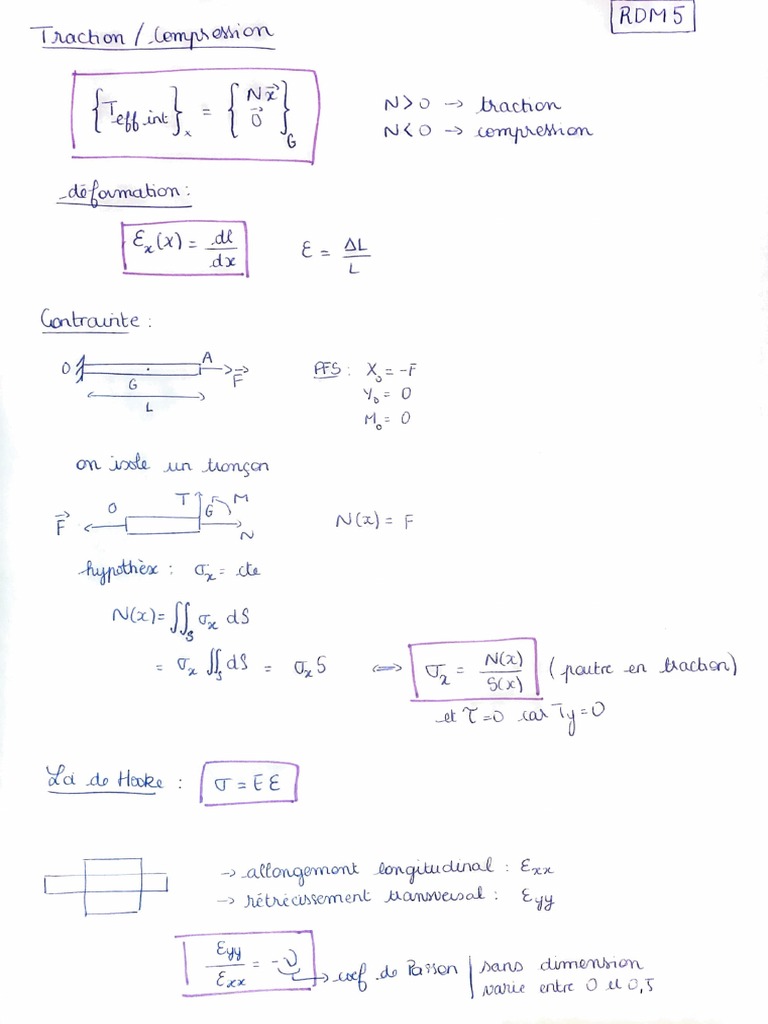 RDM 5
Traction / Compression
{T eff int}x = {N x⃗ 0⃗}G
N > 0 → traction
N < 0 → compression
déformation :
Ɛx(x) = dl/dx
Ɛ = ΔL/L
Contrainte :
O A F⃗
G
L
PFS : X₀ = -F
Y₀ = 0
M₀ = 0
on isole un tronçon
F⃗ O T G M N
N(x) = F
hypothèse : σx = cte
N(x) = ∬S σx dS
= σx ∬S dS = σx S ⇔ σx = N(x)/S(x) (poutre en traction)
et τ = 0 car Ty = 0
Loi de Hooke : σ = E Ɛ
→ allongement longitudinal : Ɛxx
→ rétrécissement transversal : Ɛyy
Ɛyy/Ɛxx = -ν → coef de Poisson | sans dimension
varie entre 0 et 0,5